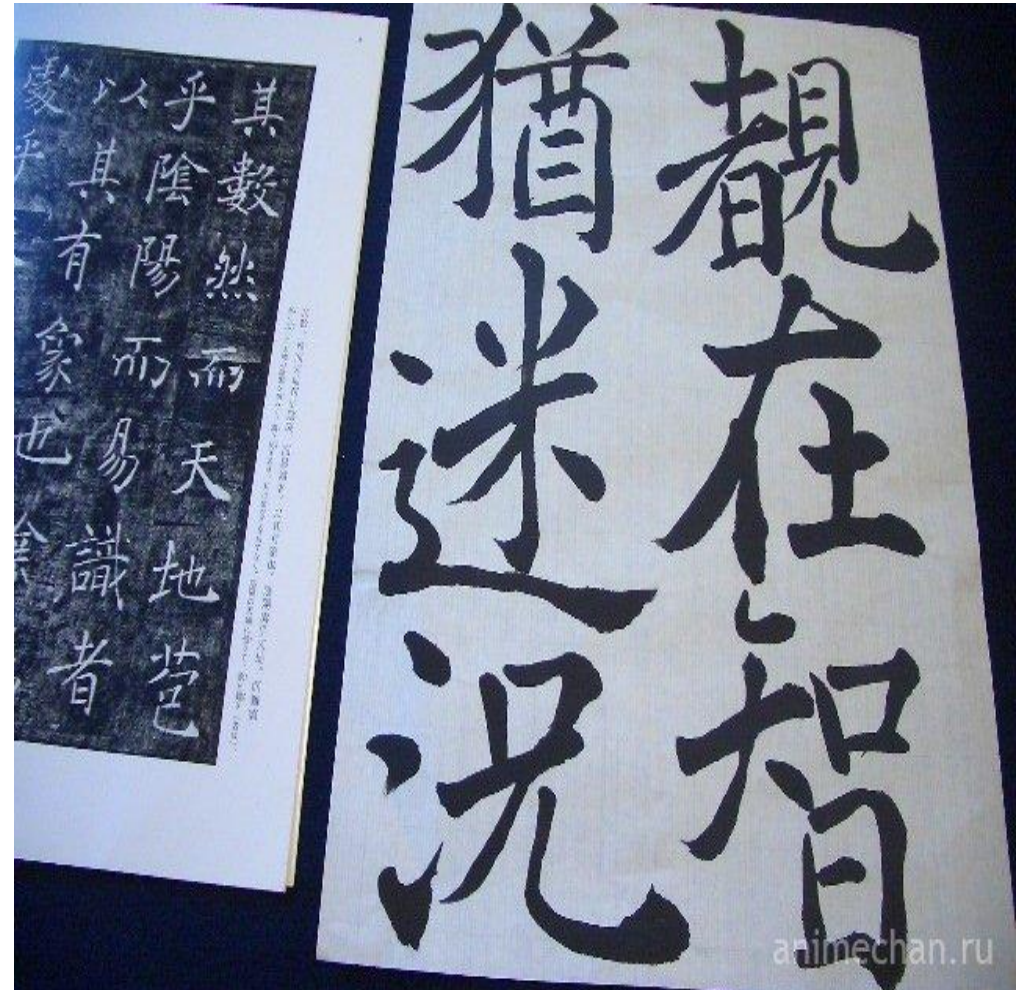 覩在智
猶迷況
其數然而天地苞
乎陰陽而易識者
以其有象也陰
處乎
animechan.ru